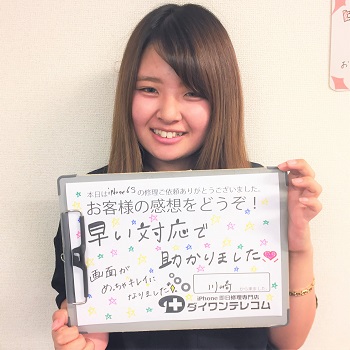 本日はiPhone6Sの修理ご依頼ありがとうございました。
お客様の感想をどうぞ！
早い対応で
助かりました、
画面が
めっちゃキレイに
なりました
川崎
から来ました！
iPhone即日修理専門店
ダイワンテレコム